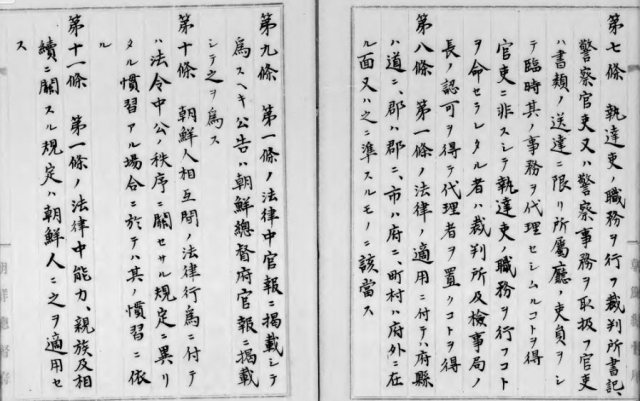 第七條　執達吏ノ職務ヲ行フ裁判所書記、
警察官吏又ハ警察事務ヲ取扱フ官吏
ハ書類ノ送達ニ限リ所屬廳ノ吏員ヲシ
テ臨時其ノ事務ヲ代理セシムルコトヲ得
官吏ニ非スシテ執達吏ノ職務ヲ行フコト
ヲ命セラレタル者ハ裁判所及檢事局ノ
長ノ認可ヲ得テ代理者ヲ置クコトヲ得
第八條　第一條ノ法律ノ適用ニ付テハ府縣
ハ道ニ、郡ハ郡ニ、市ハ府ニ、町村ハ府外ニ在
ル面又ハ之ニ準スルモノニ該當ス
第九條　第一條ノ法律中官報ニ掲載シテ
爲スヘキ公告ハ朝鮮總督府官報ニ掲載
シテ之ヲ爲ス
第十條　朝鮮人相互間ノ法律行爲ニ付テ
ハ法令中公ノ秩序ニ關セサル規定ニ異リ
タル慣習アル場合ニ於テハ其ノ慣習ニ依
ル
第十一條　第一條ノ法律中能力、親族及相
續ニ關スル規定ハ朝鮮人ニ之ヲ適用セ
ス